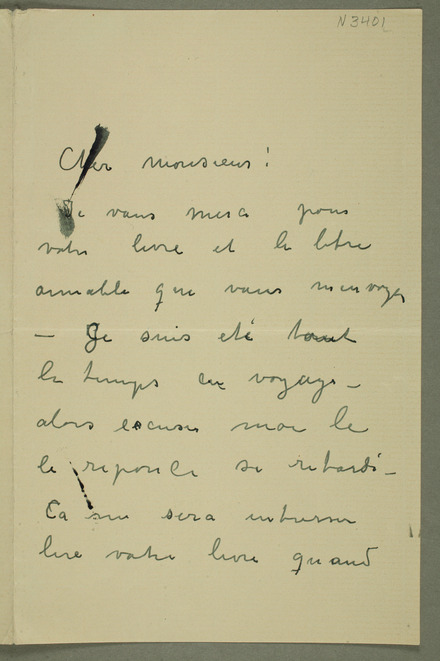 N3401
Cher monsieur!
Je vous merci pour
votre livre et la letre
aimable que vous m'envoyez
— Je suis eté tout
le temps en voyage —
alors excuses moi le
le reponce si retardé —
Ca me sera interesser
lire votre livre quand